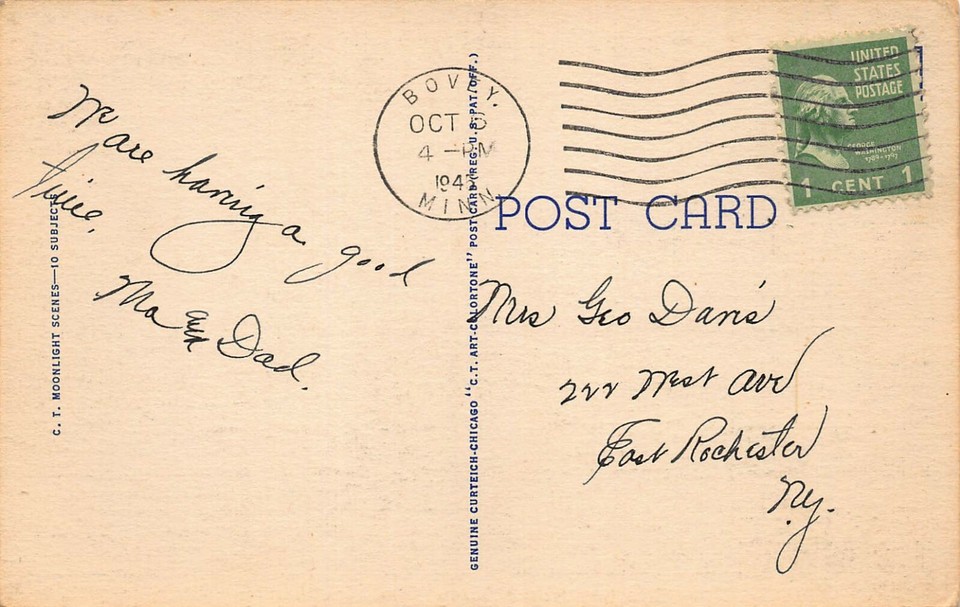 We are having a good
time.
Ma and Dad.
C. T. MOONLIGHT SCENES—10 SUBJECTS
GENUINE CURTEICH-CHICAGO "C.T. ART-COLORTONE" POST CARD (REG. U.S. PAT. OFF.)
BOVEY.
OCT 5
4 -PM
MINN
UNITED
STATES
POSTAGE
GEORGE
WASHINGTON
1789-1797
1 CENT 1
POST CARD
Mrs Geo Davis
222 West Ave
East Rochester
N.y.